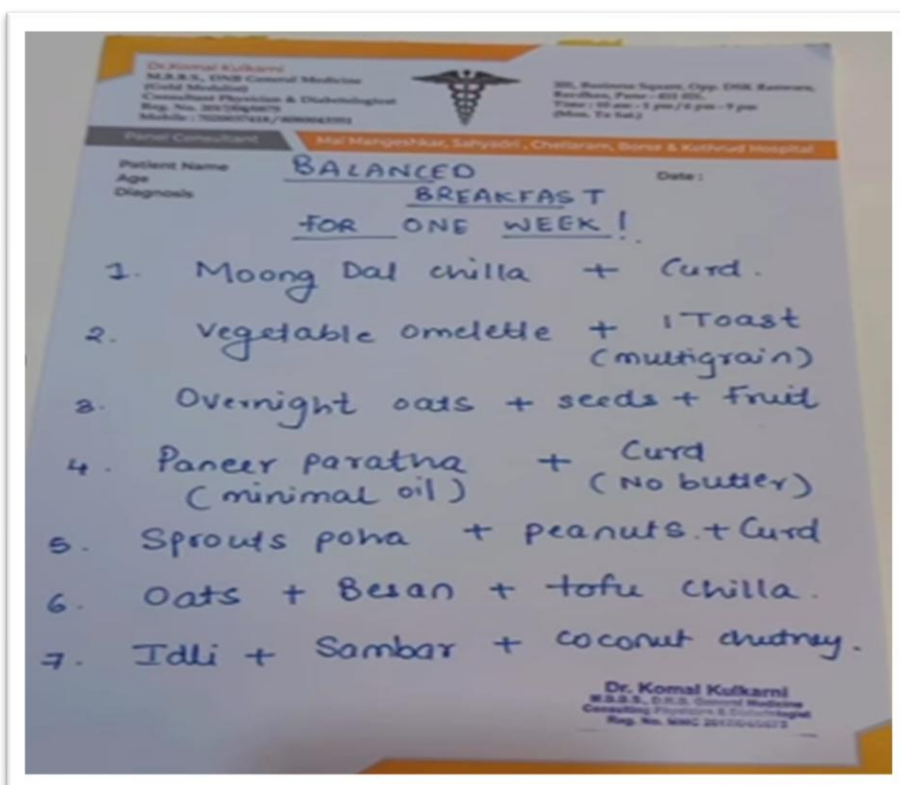 Dr. Komal Kulkarni
M.B.B.S., DNB General Medicine
(Gold Medalist)
Consultant Physician & Diabetologist
Reg. No.
Mobile :
Opp. DSK
Pune
Time : 10 am - 1 pm / 6 pm - 9 pm
(Mon. To Sat.)
Panel Consultant
Mai Mangeshkar, Sahyadri, Chellaram, Borse & Kothrud Hospital
Patient Name
BALANCED
Date :
Age
Diagnosis
BREAKFAST
FOR ONE WEEK!
1. Moong Dal chilla + Curd.
2. Vegetable omelette + 1 Toast
(multigrain)
3. Overnight oats + seeds + fruit
4. Paneer paratha + Curd
(minimal oil) (No butter)
5. Sprouts poha + peanuts. + Curd
6. Oats + Besan + tofu chilla.
7. Idli + Sambar + coconut chutney.
Dr. Komal Kulkarni
M.B.B.S., D.N.B. General Medicine
Consulting Physician & Diabetologist
Reg. No. MMC